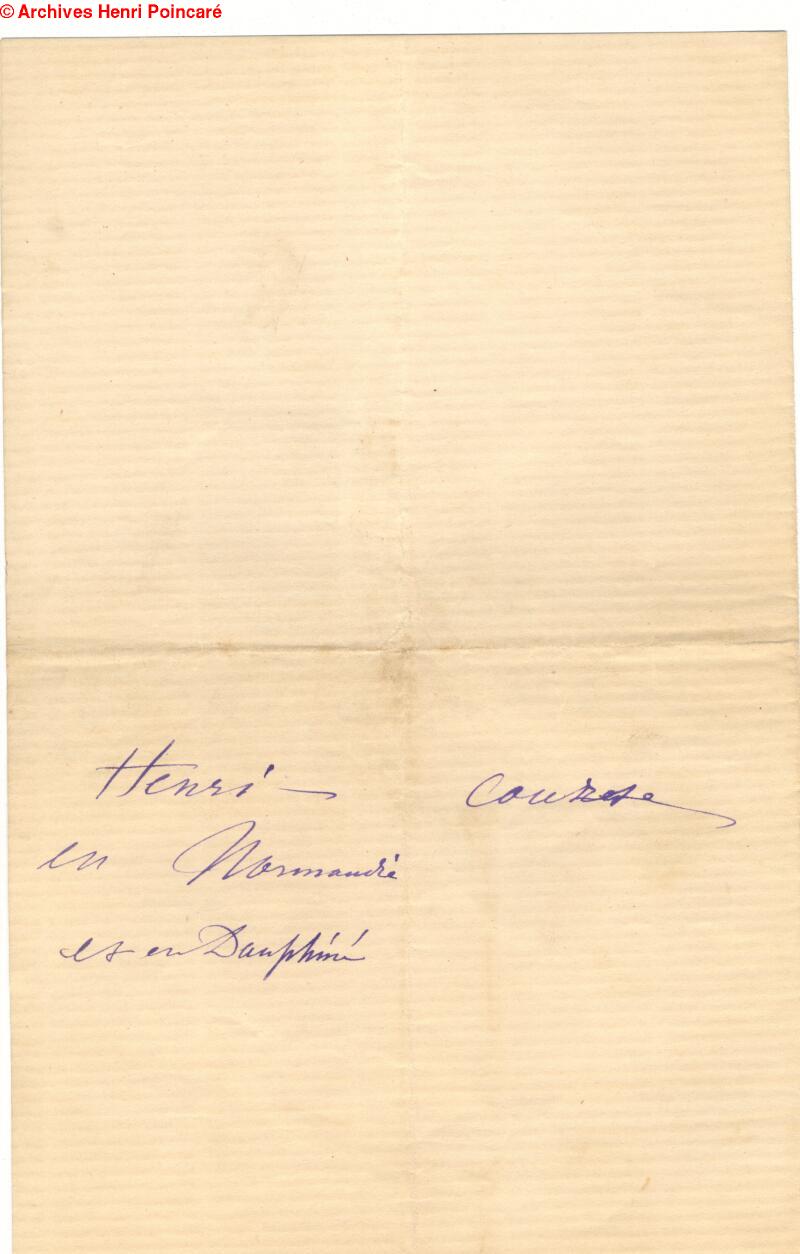 © Archives Henri Poincaré
Henri — course
en Normandie
et en Dauphiné